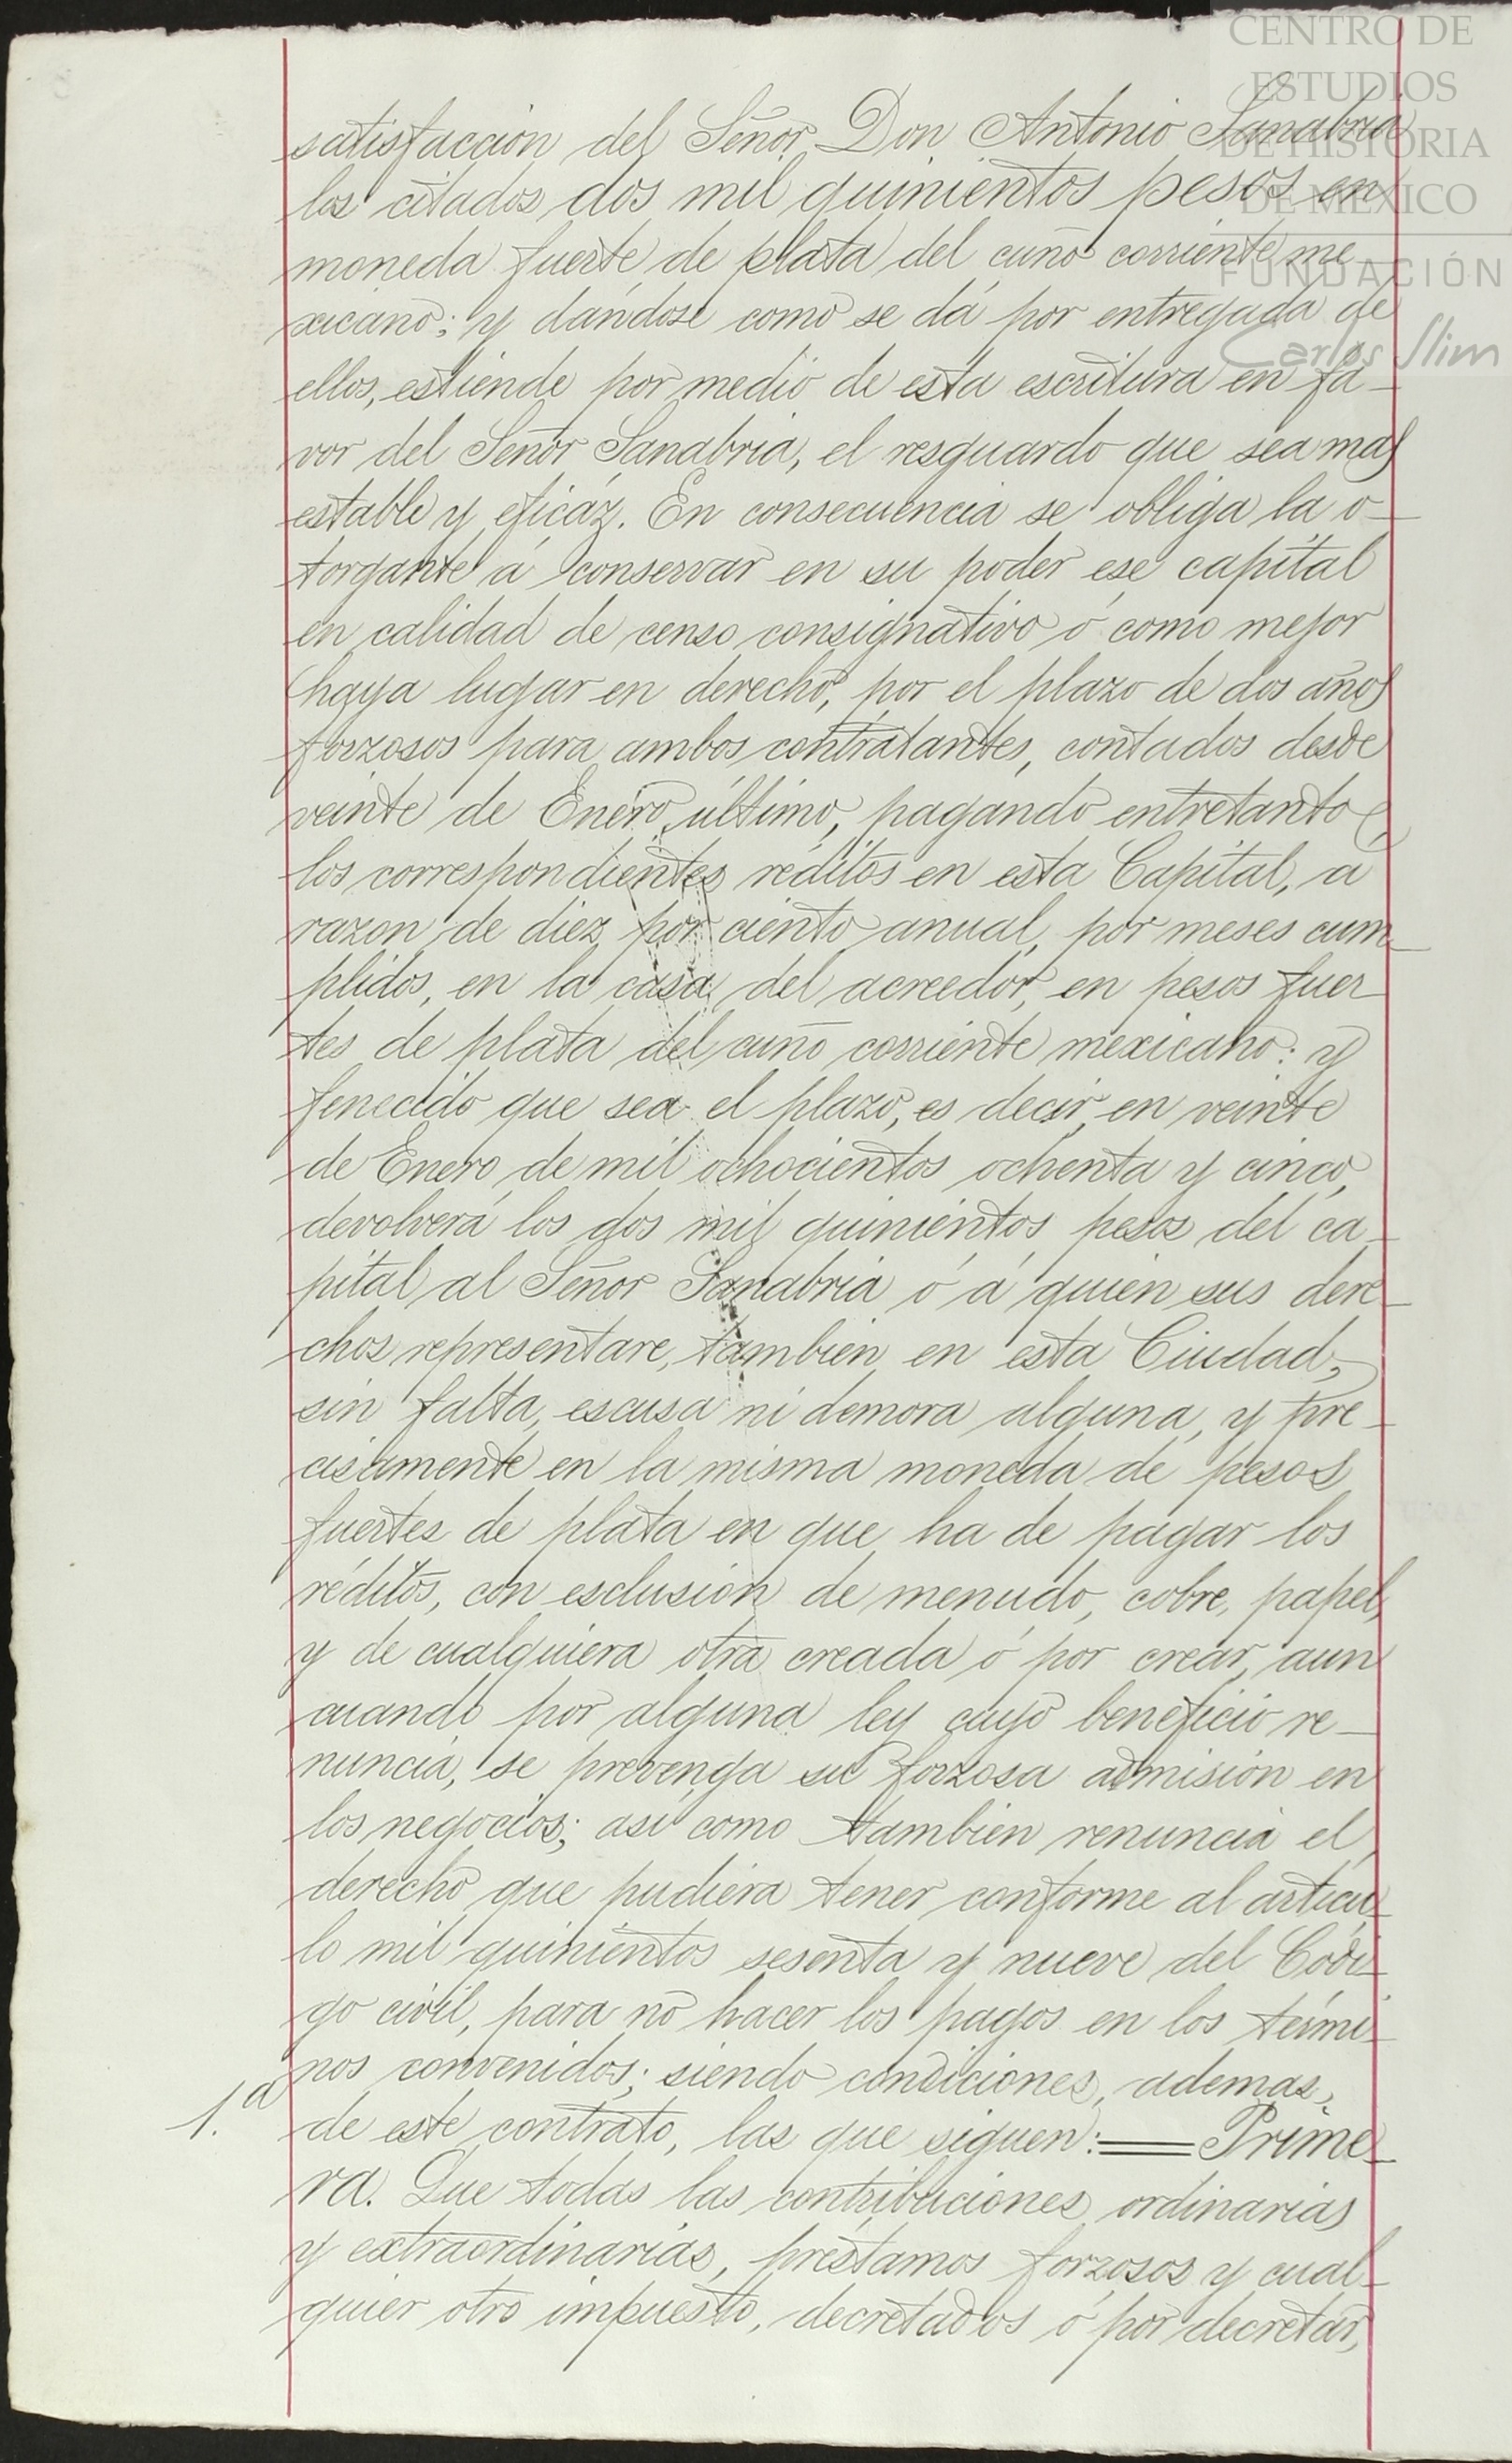 CENTRO DE
ESTUDIOS
DE HISTORIA
DE MEXICO
FUNDACIÓN
Carlos Slim
satisfaccion del Señor Don Antonio Sanabria
los citados dos mil quinientos pesos en
moneda fuerte de plata del cuño corriente me-
xicano; y dándose como se dá por entregada de
ellos, estiende por medio de esta escritura en fa-
vor del Señor Sanabria, el resguardo que sea mas
estable y eficáz. En consecuencia se obliga la o-
torgante á conservar en su poder ese capital
en calidad de censo consignativo ó como mejor
haya lugar en derecho, por el plazo de dos años
forzosos para ambos contratantes, contados desde
veinte de Enero último, pagando entretanto
los correspondientes réditos en esta Capital, a
razon de diez por ciento anual, por meses cum-
plidos, en la casa del acreedor, en pesos fuer-
tes de plata del cuño corriente mexicano: y
fenecido que sea el plazo, es decir, en veinte
de Enero de mil ochocientos ochenta y cinco,
devolverá los dos mil quinientos pesos del ca-
pital al Señor Sanabria ó á quien sus dere-
chos representare, tambien en esta Ciudad,
sin falta, escusa ni demora alguna, y pre-
cisamente en la misma moneda de pesos
fuertes de plata en que ha de pagar los
réditos, con esclusion de menudo, cobre, papel,
y de cualquiera otra creada ó por crear, aun
cuando por alguna ley cuyo beneficio re-
nuncia, se prevenga su forzosa admision en
los negocios; así como tambien renuncia el
derecho que pudiera tener conforme al artícu-
lo mil quinientos sesenta y nueve del Códi-
go civil, para no hacer los pagos en los térmi-
nos convenidos; siendo condiciones, ademas,
1.a
de este contrato, las que siguen: = Prime-
ra. Que todas las contribuciones ordinarias
y extraordinarias, préstamos forzosos y cual-
quier otro impuesto, decretados ó por decretar,